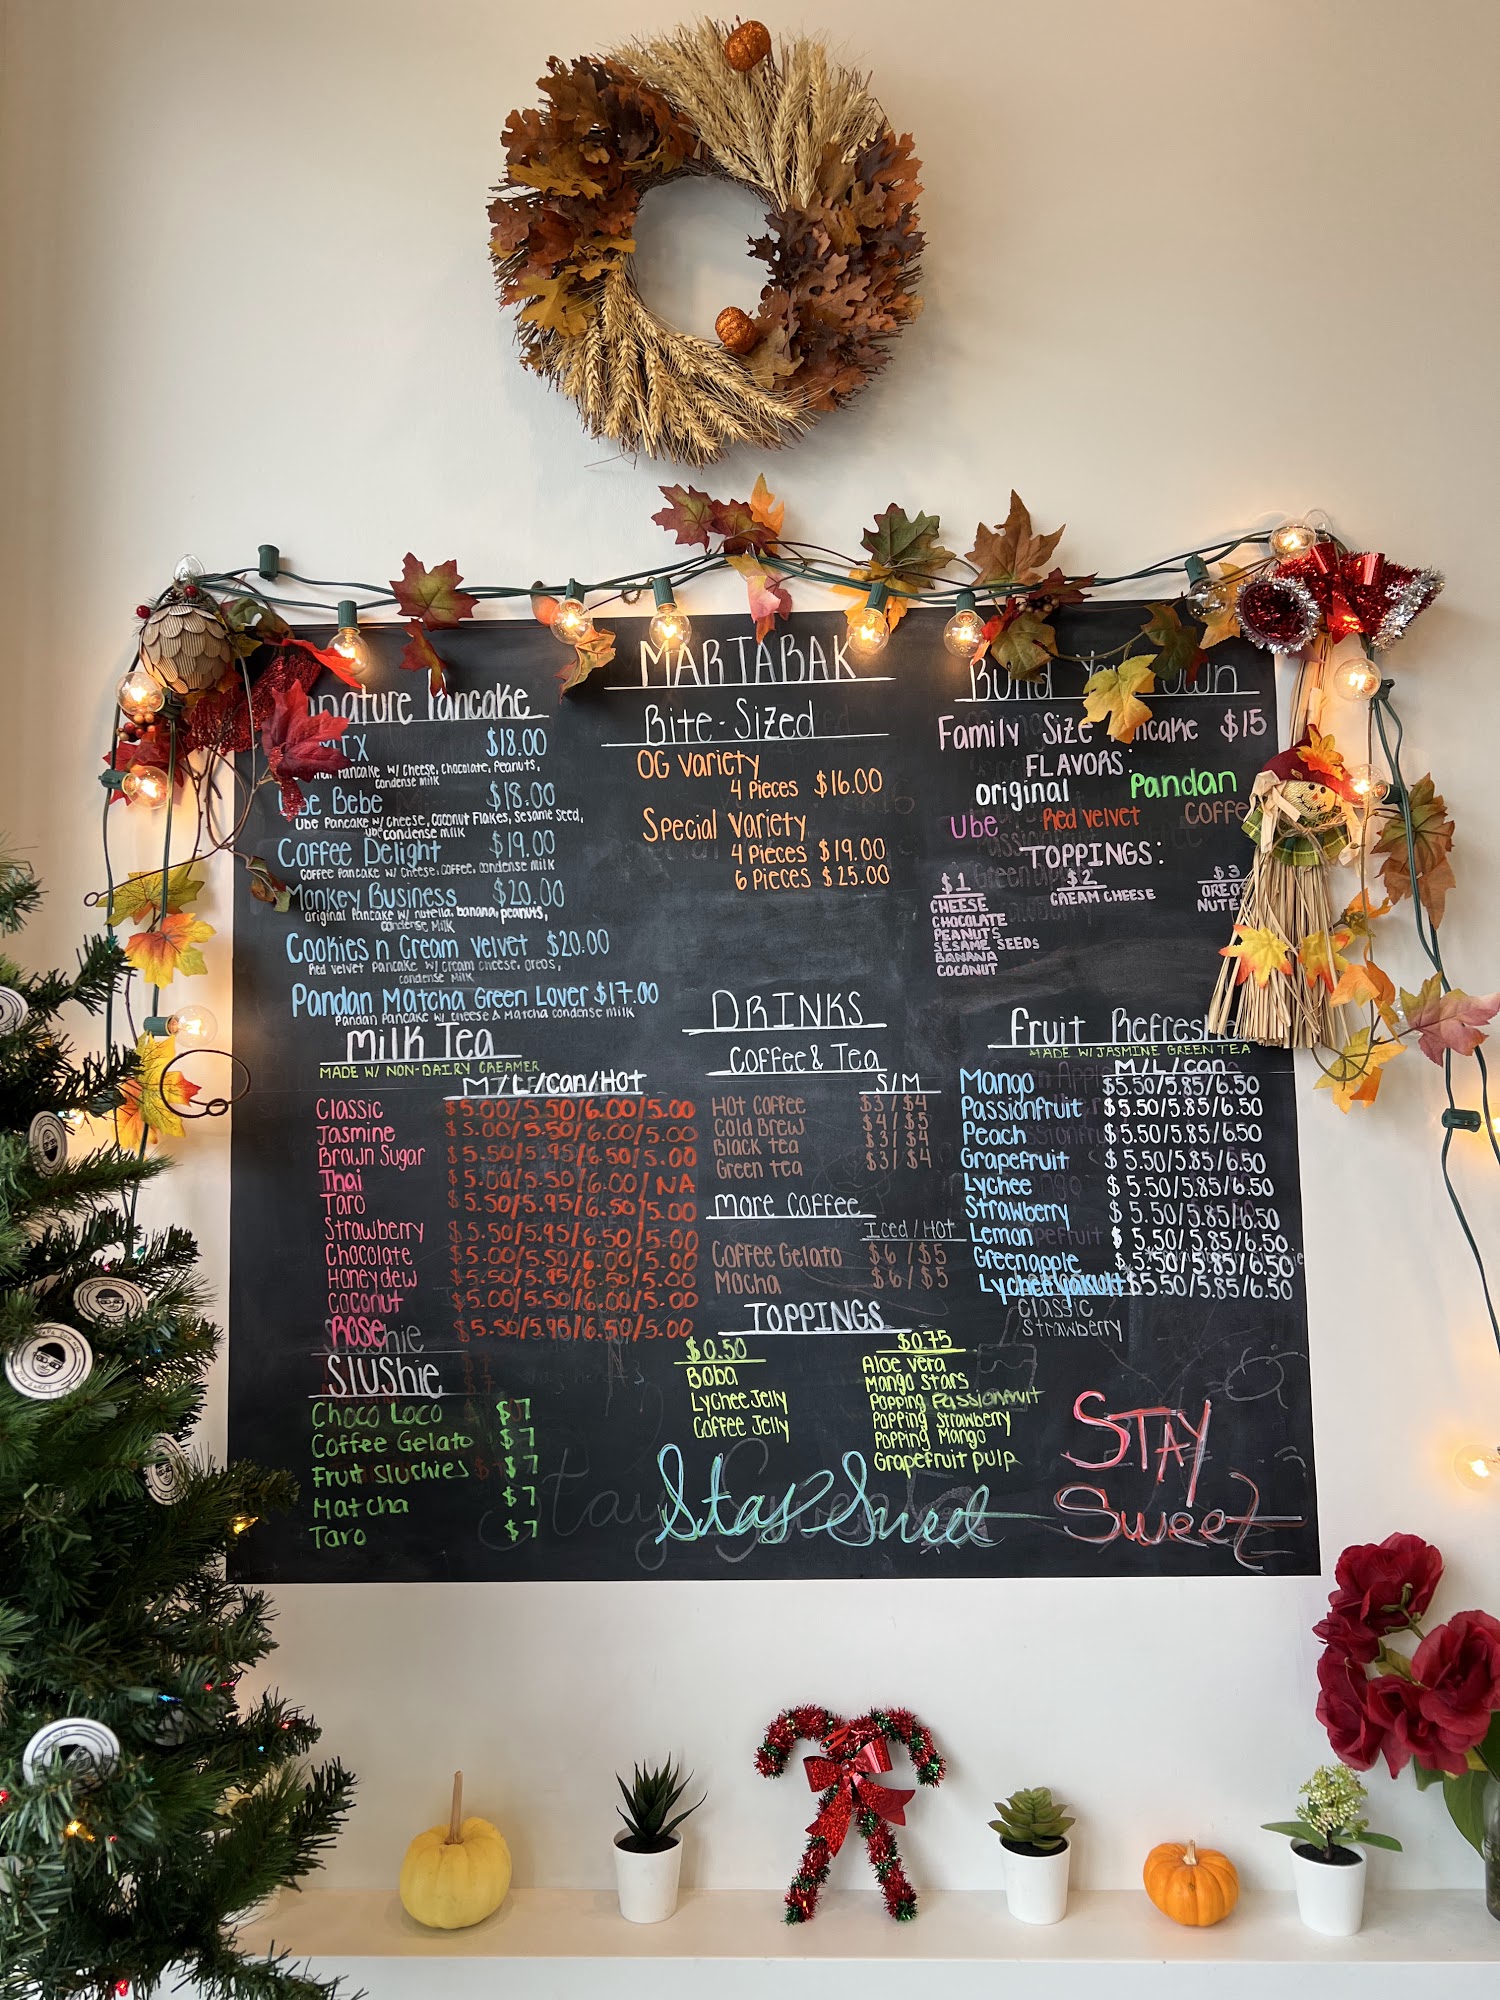 MARTABAK
Pancake
$18.00
Pancake w/ cheese, chocolate, peanuts,
condense milk
Bebe $18.00
Ube Pancake w/ cheese, coconut flakes, sesame seed,
ube condense milk
Coffee Delight $19.00
Coffee Pancake w/ cheese, coffee, condense milk
Monkey Business $20.00
Original Pancake w/ nutella, banana, peanuts,
condense milk
Cookies n Cream Velvet $20.00
Red velvet Pancake w/ cream cheese, oreos,
condense milk
Pandan Matcha Green Lover $17.00
Pandan Pancake w/ cheese & Matcha condense milk
Bite-Sized
OG Variety
4 Pieces $16.00
Special Variety
4 Pieces $19.00
6 Pieces $25.00
Build
Family Size $15
FLAVORS:
Original Pandan
Ube Red velvet
TOPPINGS:
$1 $2 $3
CHEESE
CREAM CHEESE
CHOCOLATE
PEANUTS
SESAME SEEDS
BANANA
COCONUT
Milk Tea
MADE W/ NON-DAIRY CREAMER
M/L/can/Hot
Classic $5.00/5.50/6.00/5.00
Jasmine $5.00/5.50/6.00/5.00
Brown Sugar $5.50/5.95/6.50/5.00
Thai $5.00/5.50/6.00/NA
Taro $5.50/5.95/6.50/5.00
Strawberry $5.50/5.95/6.50/5.00
Chocolate $5.00/5.50/6.00/5.00
Honeydew $5.50/5.95/6.50/5.00
Coconut $5.00/5.50/6.00/5.00
Rose $5.50/5.95/6.50/5.00
Slushie
Choco Loco $7
Coffee Gelato $7
Fruit Slushies $7
Matcha $7
Taro $7
DRINKS
Coffee & Tea
S/M
Hot Coffee $3/$4
Cold Brew $4/$5
Black tea $3/$4
Green tea $3/$4
More Coffee
Iced/Hot
Coffee Gelato $6/$5
Mocha $6/$5
TOPPINGS
$0.50
Boba
Lychee Jelly
Coffee Jelly
$0.75
Aloe vera
Mango Stars
Popping Passionfruit
Popping Strawberry
Popping Mango
Grapefruit pulp
Fruit
MADE W/ JASMINE GREEN TEA
M/L/can
Mango $5.50/5.85/6.50
Passionfruit $5.50/5.85/6.50
Peach $5.50/5.85/6.50
Grapefruit $5.50/5.85/6.50
Lychee $5.50/5.85/6.50
Strawberry $5.50/5.85/6.50
Lemon $5.50/5.85/6.50
Greenapple $5.50/5.85/6.50
Lychee yakult $5.50/5.85/6.50
Classic
Strawberry
Stay Sweet
STAY
Sweet